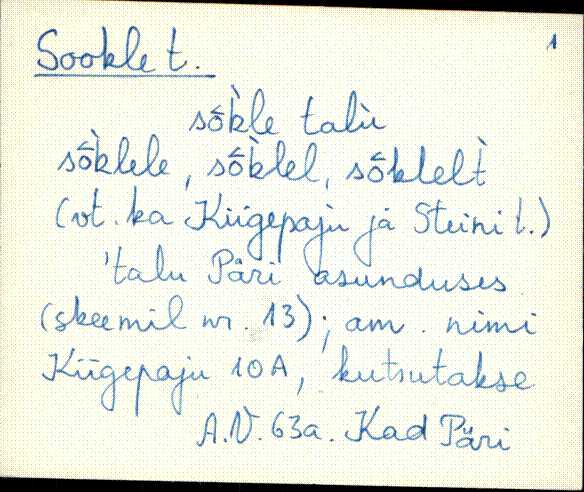 Sookle t. 1
sṓk̀le talù
sṓk̀lele, sṓk̀lel, sṓklelt̀
(vt. ka Kiigepaju ja Steini t.)
'talu Päri asunduses
(skeemil nr. 13); am. nimi
Kiigepaju 10A, kutsutakse
A.V. 63a. Kad Päri